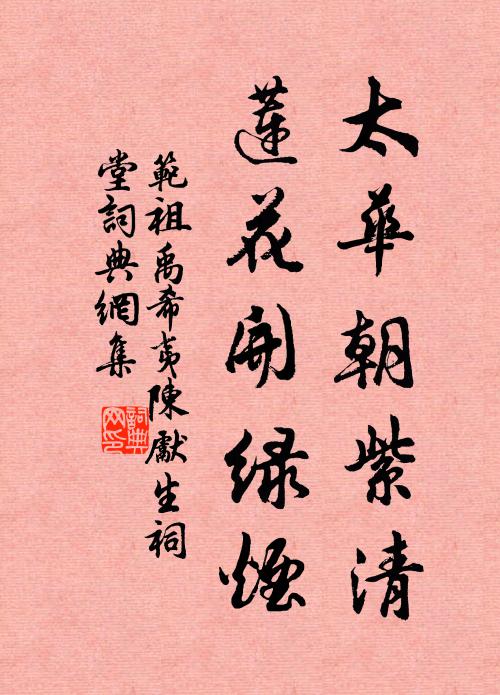 太華朝紫清
蓮花開綠煙
範祖禹希夷陳獻生祠
堂詞典網集
詞典
网印